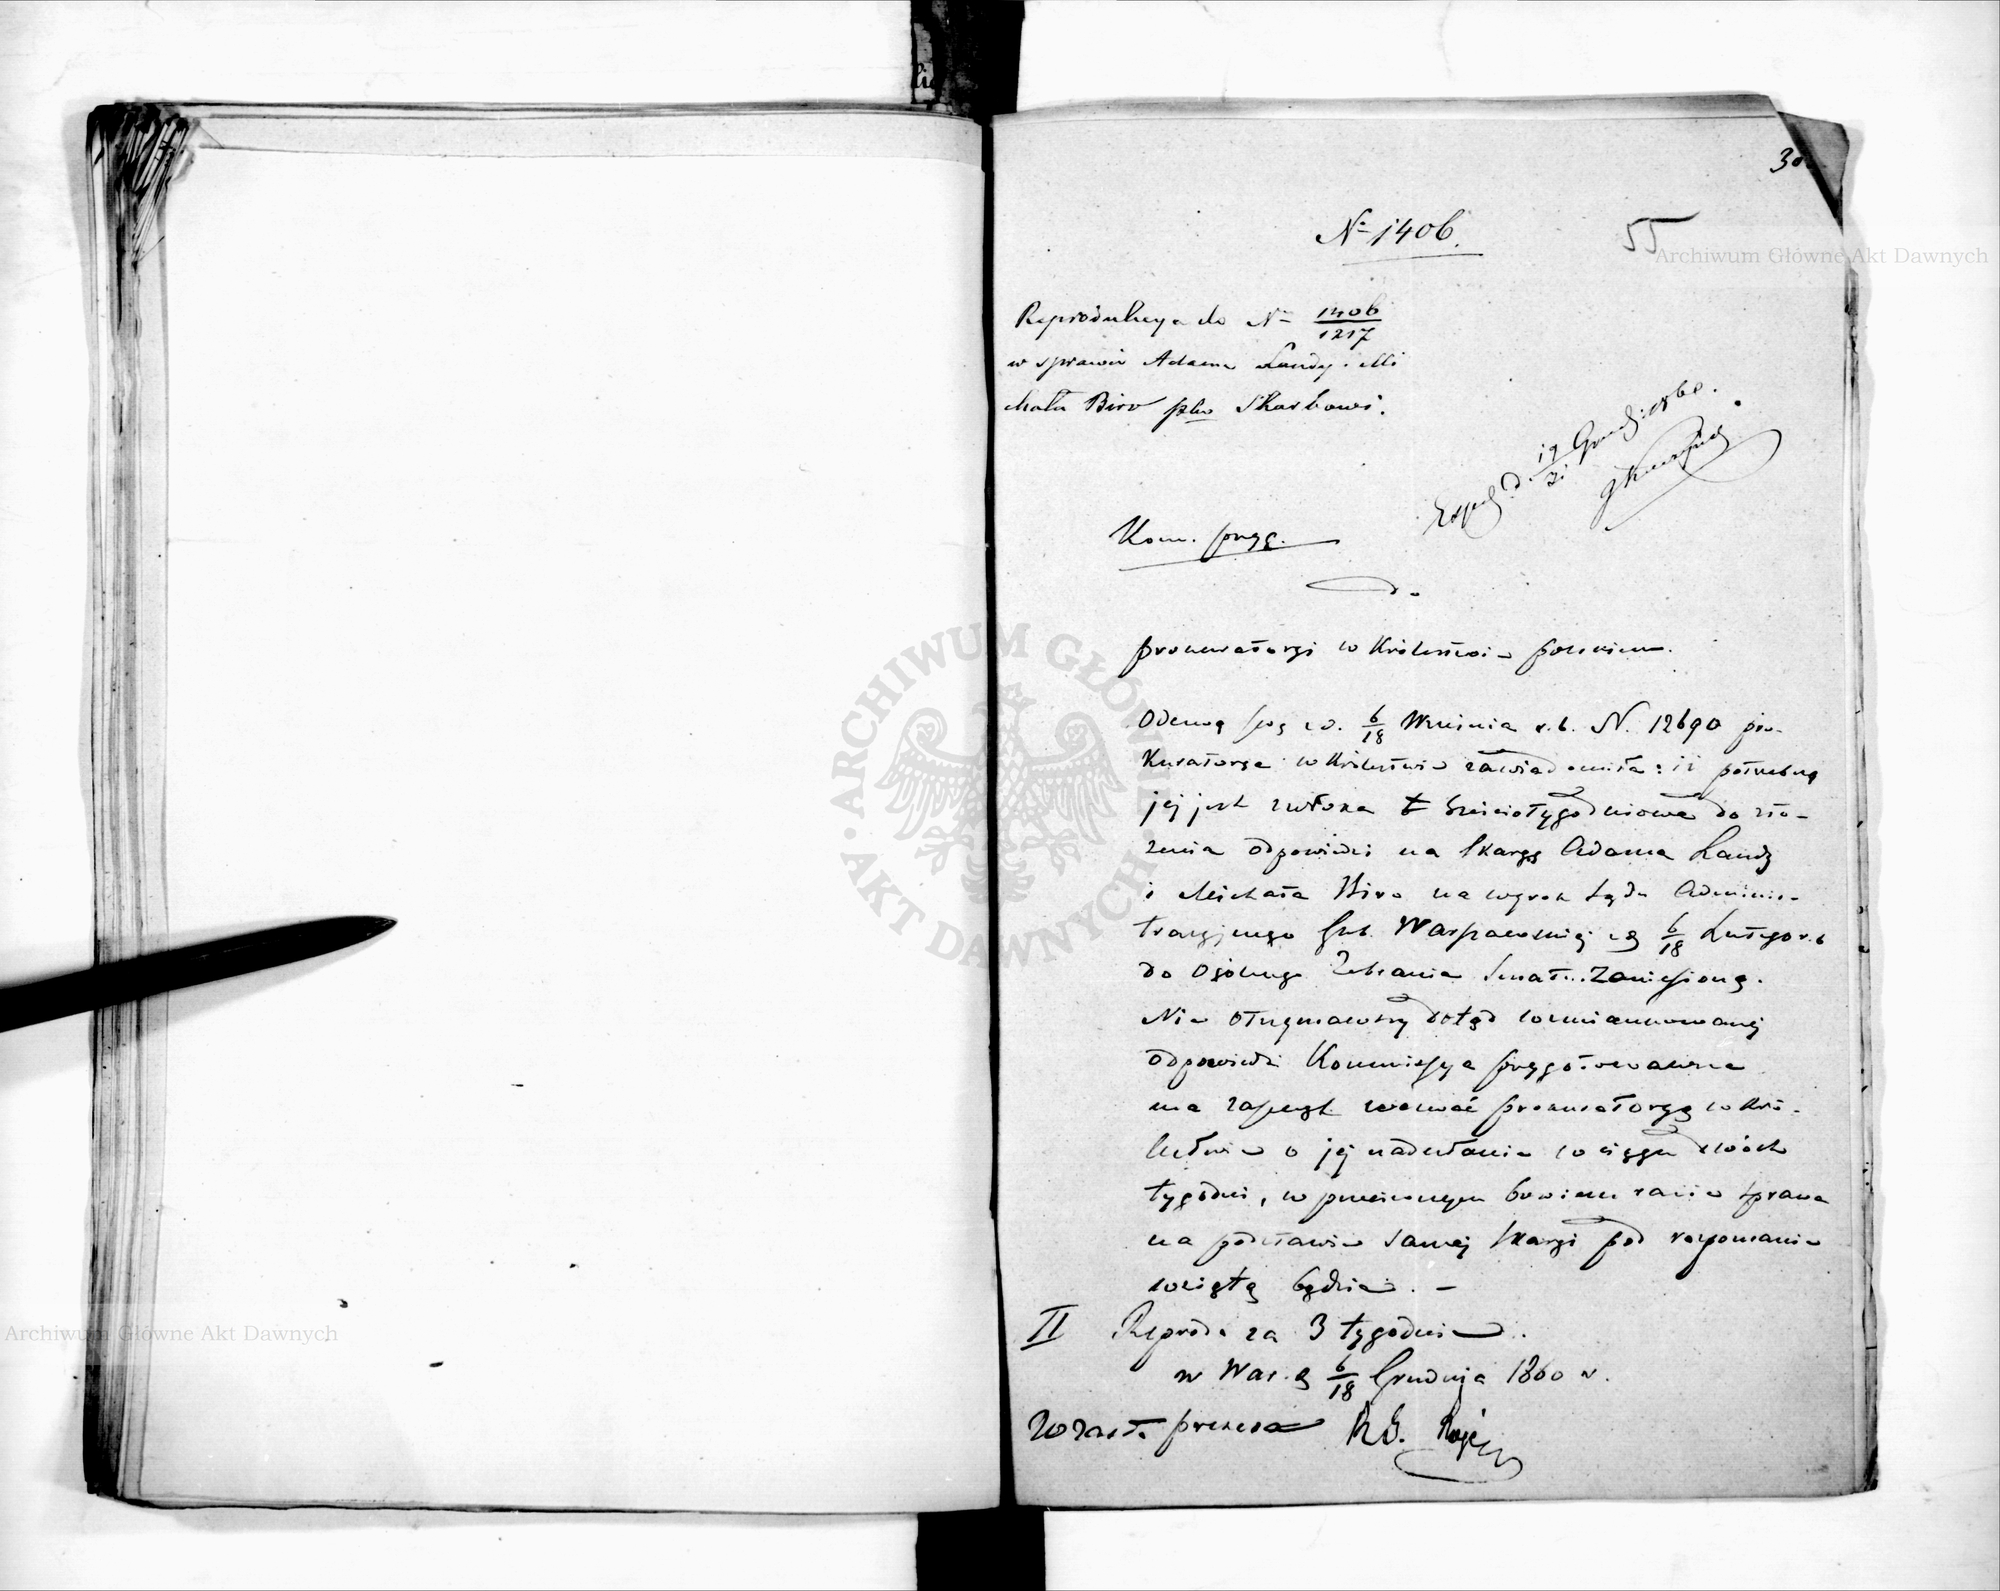 30
№ 1406.
55
Reprodukcya do № 1406/1217
w sprawie Adama Landy i Mi
chała Biro plko Skarbowi.
Exped d. 19/31 Grud: 1860.
Kom. przg.
do
prokuratoryi w Królestwie polskiem.
Odezwą swą z d. 6/18 Września r.b. N. 12690 pro-
kuratorya w Królestwie zawiadomiła: iż potrzebną
jej jest zwłoka sześciotygodniowa do zło-
żenia odpowiedzi na skargę Adama Landy
i Michała Biro na wyrok Sądu Adminis-
tracyjnego Gub. Warszawskiej z d. 6/18 Lutego r.b
do Ogólnego Zebrania Senatu zaniesioną.
Nie otrzymawszy dotąd wzmiankowanej
odpowiedzi Kommissya przygotowawcza
ma zaszczyt wezwać prokuratoryą w Kró-
lestwie o jej nadesłanie w ciągu dwóch
tygodni, w przeciwnym bowiem razie sprawa
na podstawie samej skargi pod rozpoznanie
wziętą będzie. —
II Reprod. za 3 tygodnie.
w War. d 6/18 Grudnia 1860 r.
w zast. prezesa R. S.
Archiwum Główne Akt Dawnych
ARCHIWUM GŁÓWNE AKT DAWNYCH
Archiwum Główne Akt Dawnych